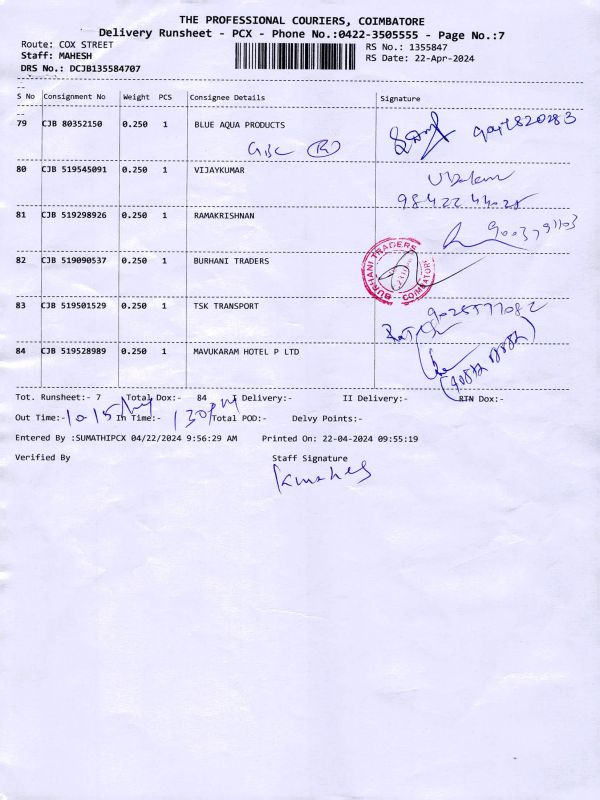 THE PROFESSIONAL COURIERS, COIMBATORE
Delivery Runsheet - PCX - Phone No.:0422-3505555 - Page No.:7
Route: COX STREET RS No.: 1355847
Staff: MAHESH RS Date: 22-Apr-2024
DRS No.: DCJB135584707
S No Consignment No Weight PCS Consignee Details Signature
79 CJB 80352150 0.250 1 BLUE AQUA PRODUCTS
80 CJB 519545091 0.250 1 VIJAYKUMAR
81 CJB 519298926 0.250 1 RAMAKRISHNAN
9003791103
82 CJB 519090537 0.250 1 BURHANI TRADERS
BURHANI TRADERS
COIMBATORE
83 CJB 519501529 0.250 1 TSK TRANSPORT
84 CJB 519528989 0.250 1 MAVUKARAM HOTEL P LTD
Tot. Runsheet:- 7 Total Dox:- 84 I Delivery:- II Delivery:- RTN Dox:-
Out Time:- 10 15 In Time:- 1 30 PM Total POD:- Delvy Points:-
Entered By :SUMATHIPCX 04/22/2024 9:56:29 AM Printed On: 22-04-2024 09:55:19
Verified By Staff Signature